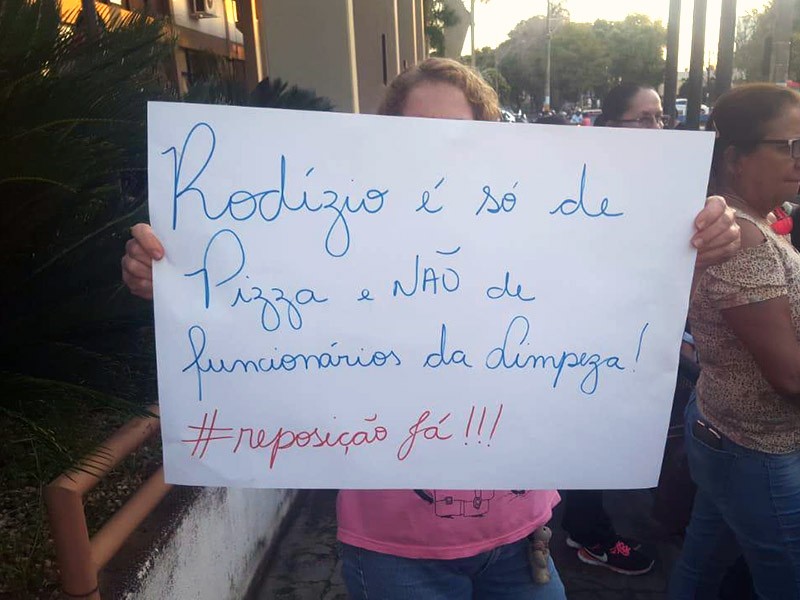 Rodízio é só de
Pizza e NÃO de
funcionários da Limpeza!
#reposição Já!!!